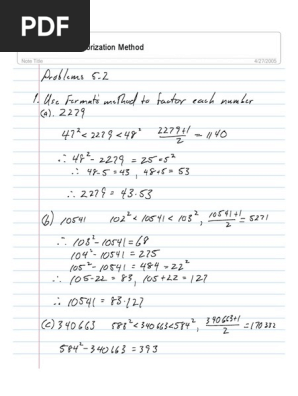 PDF
orization Method
Note Title
4/27/2005
Problems 5.2
1. Use Fermat's method to factor each number
(a). 2279
47² < 2279 < 48²   (2279+1)/2 = 1140
∴ 48² - 2279 = 25 = 5²
∴ 48-5 = 43, 48+5 = 53
∴ 2279 = 43·53
(b) 10541   102² < 10541 < 103², (10541+1)/2 = 5271
∴ 103² - 10541 = 68
104² - 10541 = 275
105² - 10541 = 484 = 22²
∴ 105-22 = 83, 105+22 = 127
∴ 10541 = 83·127
(c) 340663   583² < 340663 < 584², (340663+1)/2 = 170332
584² - 340663 = 393